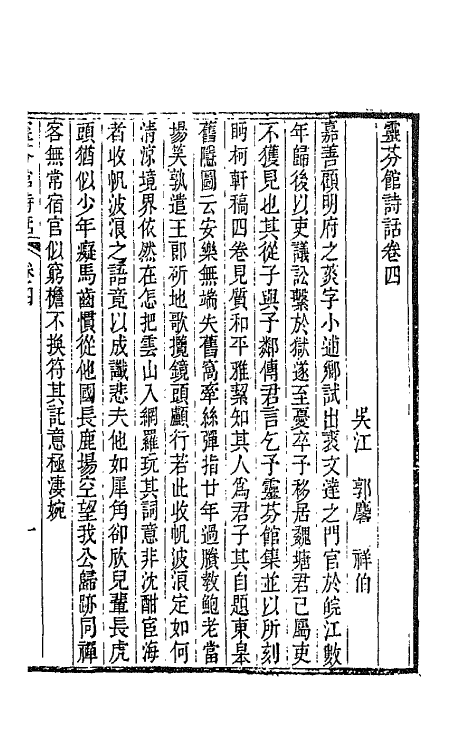 靈芬館詩話卷四
吳江　郭麐　祥伯
嘉善顧明府之菼字小逑鄉試出裘文達之門官於皖江數
年歸後以吏議訟繫於獄遂至憂卒予移居魏塘君已屬吏
不獲見也其從子與予鄰傳君言乞予靈芬館集並以所刻
眄柯軒稿四卷見質和平雅絜知其人為君子其自題東皋
舊隱圖云安樂無端失舊窩牽絲彈指廿年過賸教鮑老當
場笑孰遣王郎斫地歌攬鏡頭顱行若此收帆波浪定如何
清涼境界依然在怎把雲山入網羅玩其詞意非沈酣宦海
者收帆波浪之語竟以成讖悲夫他如犀角卻欣兒輩長虎
頭猶似少年癡馬齒慣從他國長鹿場空望我公歸跡同禪
客無常宿官似窮檐不換符其託意極淒婉
靈芬館詩話　卷四　一